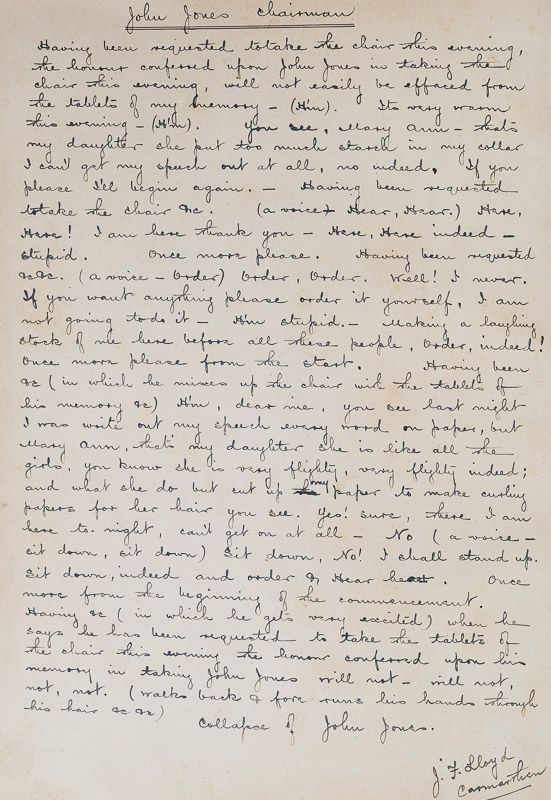 John Jones Chairman
Having been requested to take the chair this evening,
the honour conferred upon John Jones in taking the
chair this evening, will not easily be effaced from
the tablets of my memory - (H'm). Its very warm
this evening - (H'm). You see, Mary Ann - thats
my daughter she put too much starch in my collar
I can't get my speech out at all, no indeed. If you
please I'll begin again. - Having been requested
to take the chair &c. (a voice) Hear, Hear.) Here,
Here! I am here thank you - Here, Here indeed -
stupid. Once more please. Having been requested
&c &c. (a voice - Order) Order, Order. Well! I never.
If you want anything please order it yourself, I am
not going to do it - H'm stupid. - Making a laughing
stock of me here before all these people, Order, indeed!
Once more please from the start. Having been
&c (in which he mixes up the chair with the tablets of
his memory &c) H'm, dear me, you see last night
I was write out my speech every word on paper, but
Mary Ann, that's my daughter she is like all the
girls, you know she is very flighty, very flighty indeed;
and what she do but cut up my paper to make curling
papers for her hair you see. Yes! sure, there I am
here to-night, can't get on at all - No (a voice -
sit down, sit down) Sit down, No! I shall stand up.
Sit down, indeed and order & Hear hear. Once
more from the beginning of the commencement.
Having &c (in which he gets very excited) when he
says he has been requested to take the tablets of
the chair this evening the honour conferred upon his
memory in taking John Jones will not - will not,
not, not. (Walks back & fore runs his hands through
his hair &c &c)
Collapse of John Jones.
J. F. Lloyd
Carmarthen